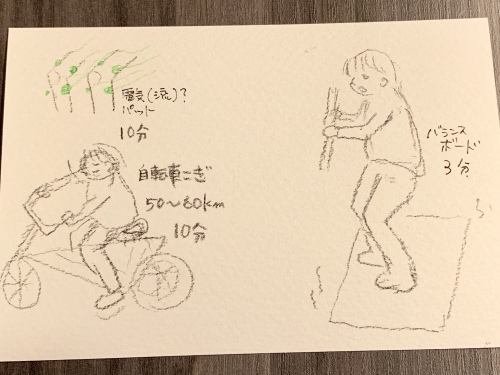 電気(流)?
パット
10分
自転車こぎ
50〜60km
10分
バランス
ボード
3分